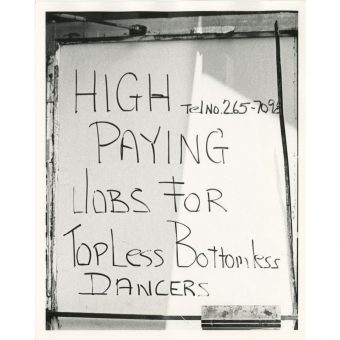 HIGH Tel No. 265-7098
PAYING
JOBS FOR
TopLess Bottomless
DANCERS